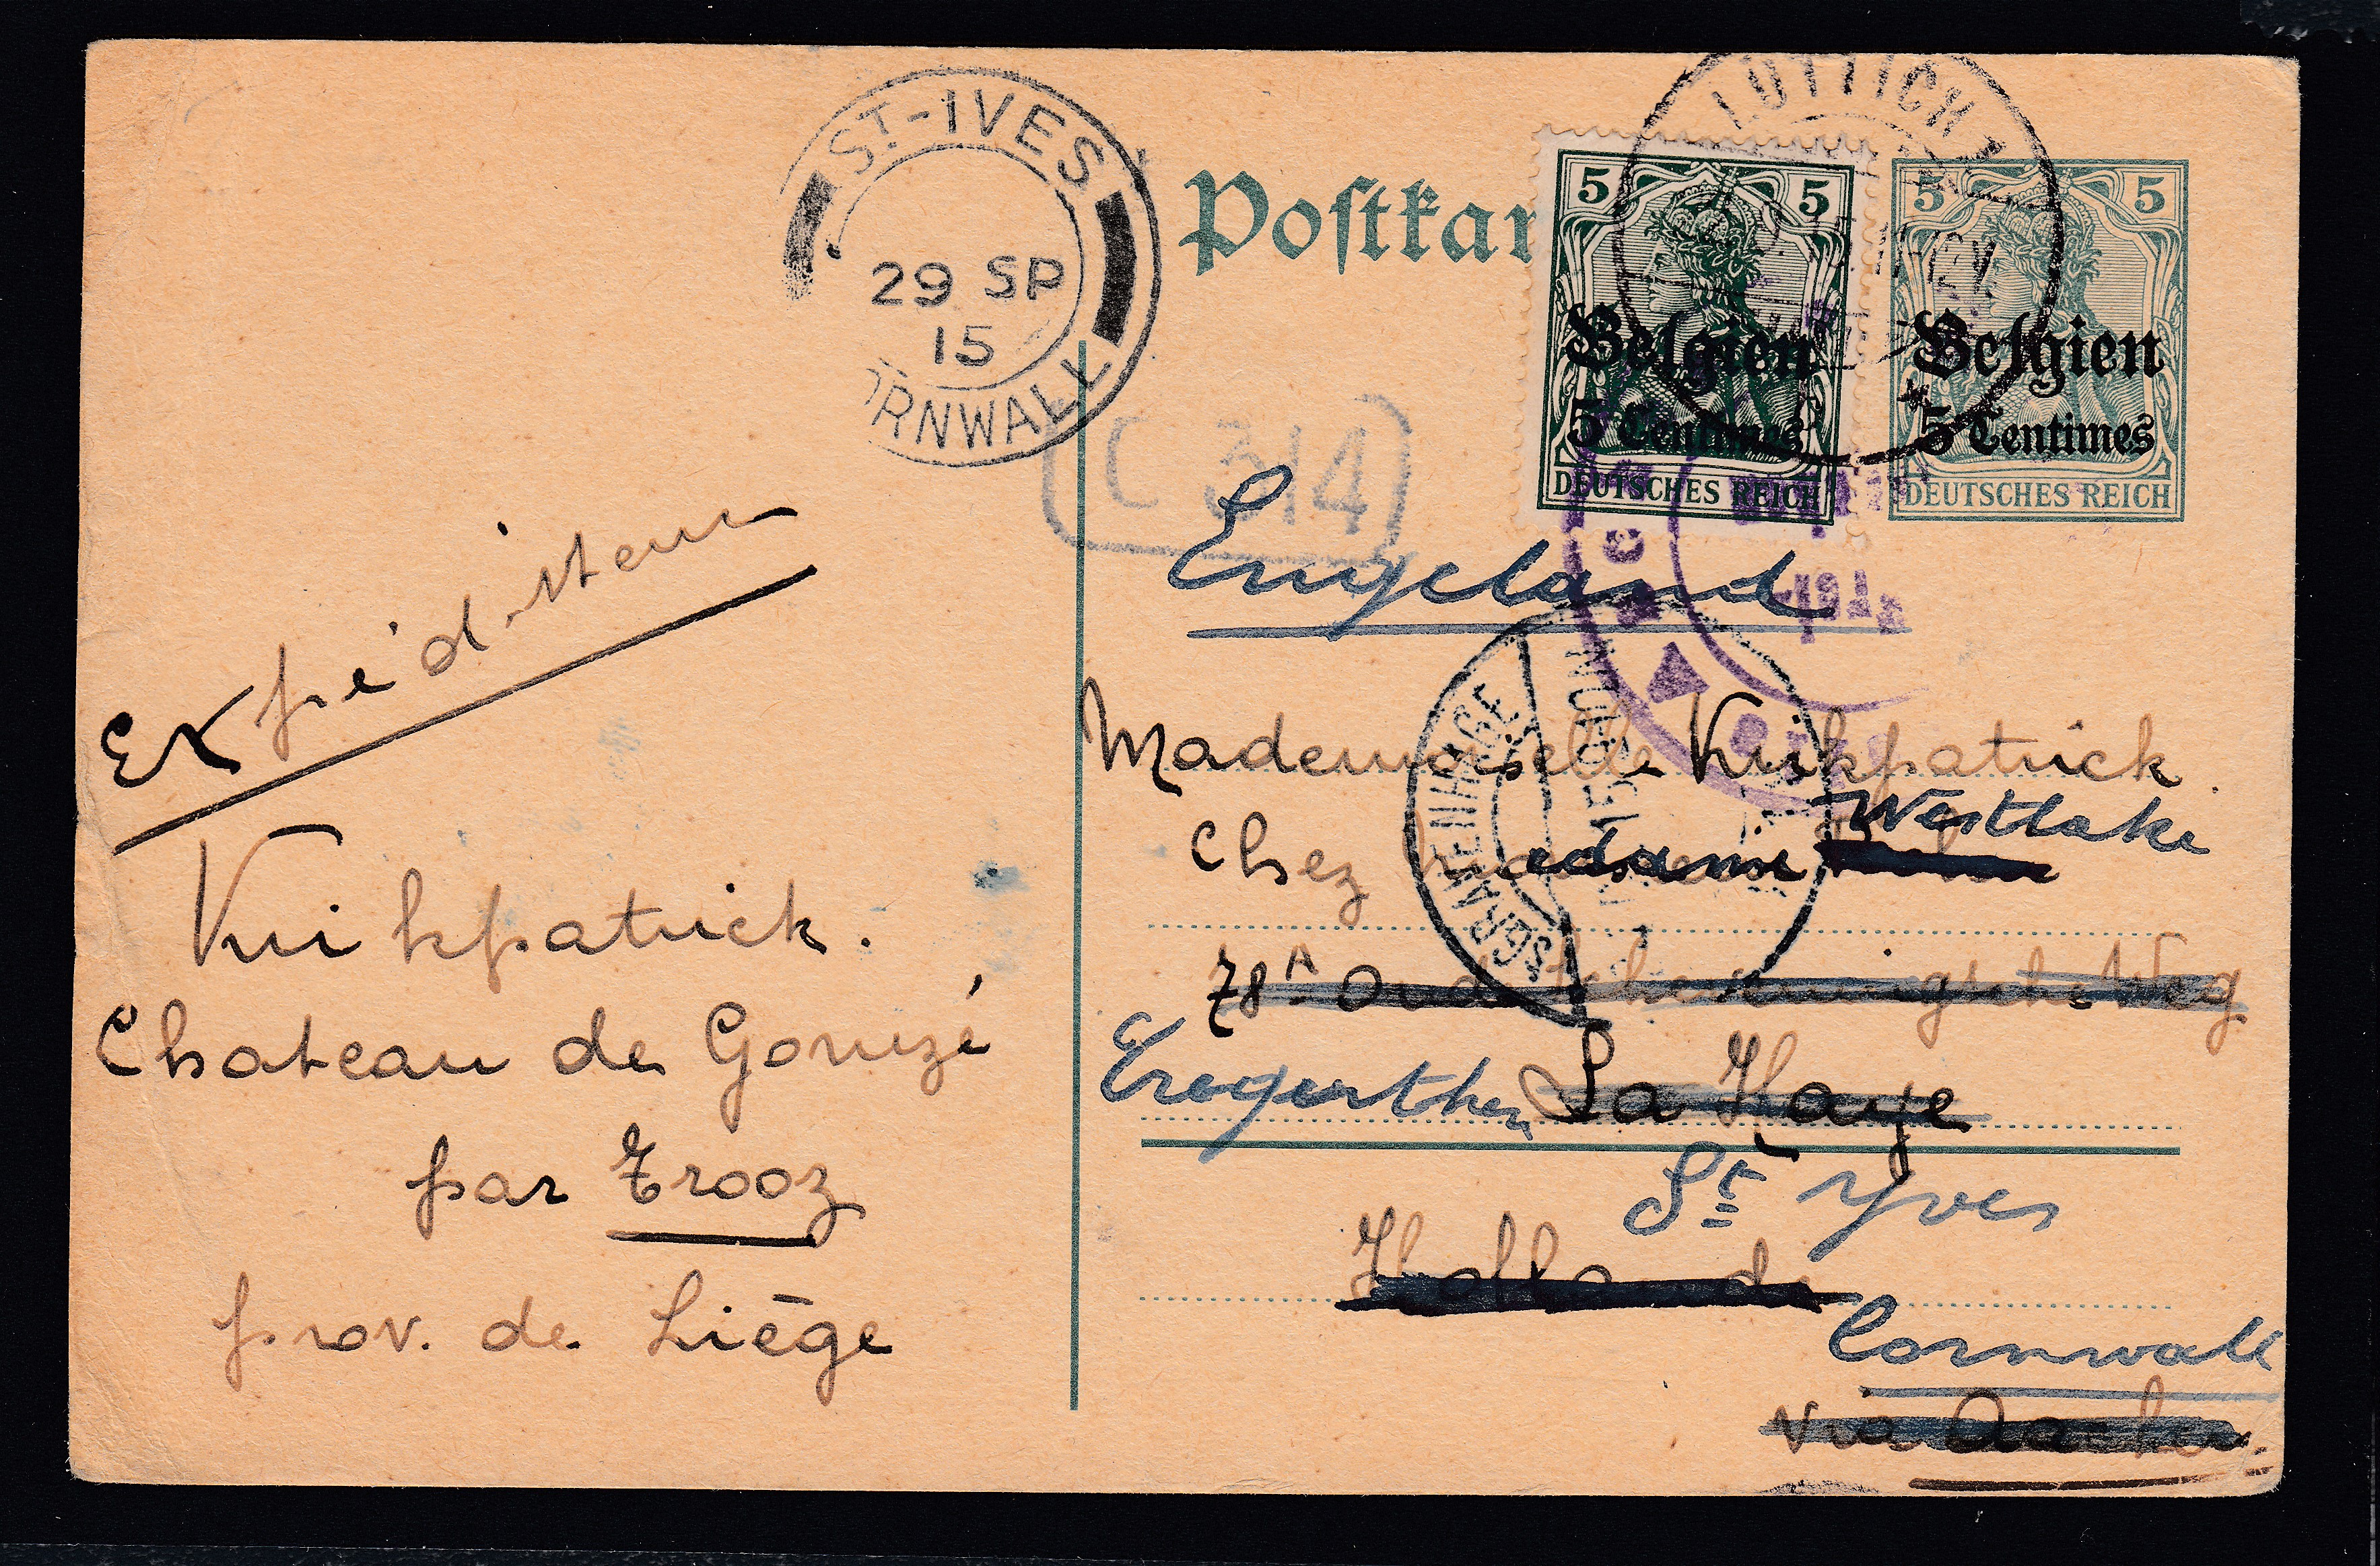 ST-IVES
29 SP
15
CORNWALL
Postkar
LÜTTICH 1
5 5
Belgien
5 Centimes
DEUTSCHES REICH
5 5
Belgien
5 Centimes
DEUTSCHES REICH
C 314
Engeland
'S GRAVENHAGE
Expéditeur
Kirkpatrick.
Chateau de Gomzé
par Trooz
prov. de Liège
Mademoiselle Kirkpatrick
Chez Madame Westlake
78A Oude Scheveningsche Weg
La Haye
St Yves
Hollande
Cornwall
via Aachen